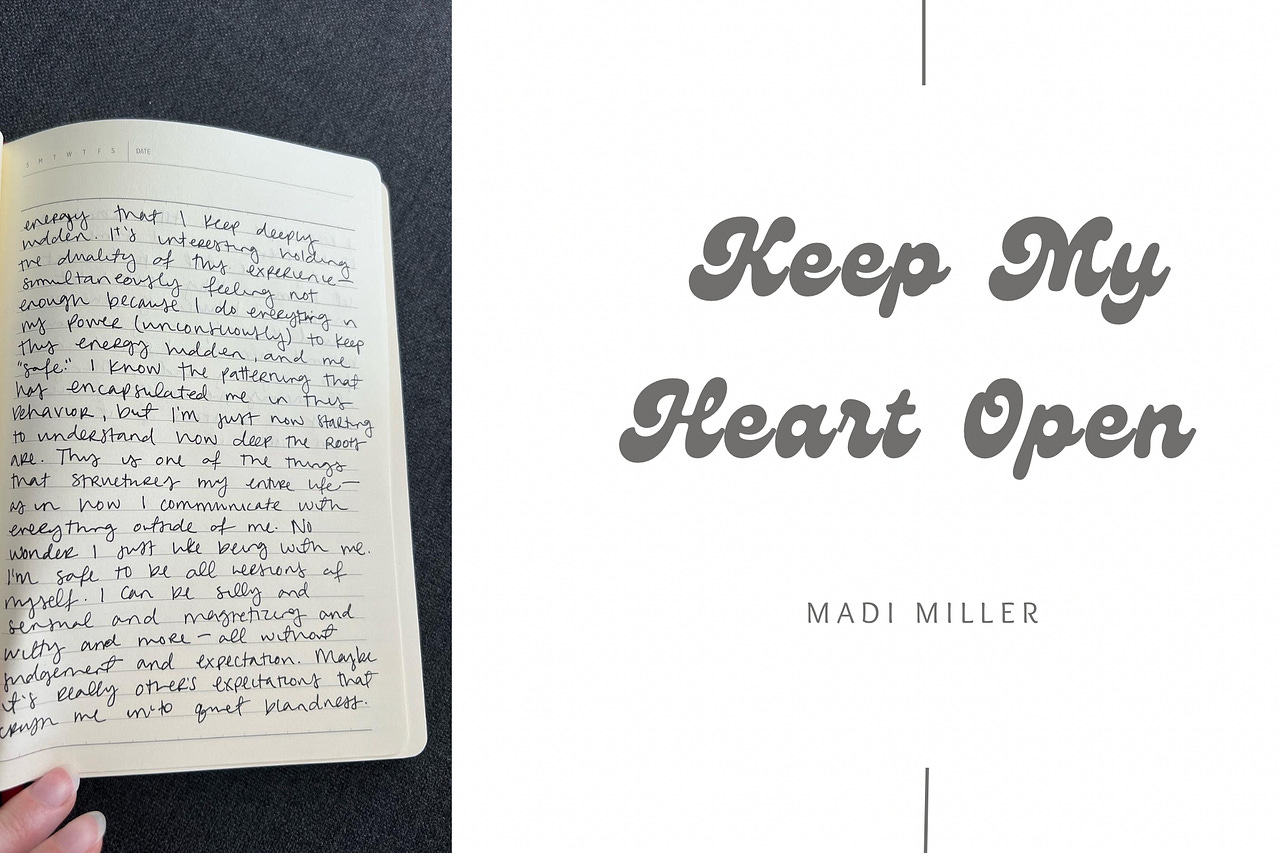 S M T W T F S DATE
energy that I keep deeply
hidden. It's interesting holding
the duality of this experience—
simultaneously feeling not
enough because I do everything in
my power (unconsciously) to keep
this energy hidden, and me
"safe." I know the patterning that
has encapsulated me in this
behavior, but I'm just now starting
to understand how deep the roots
are. This is one of the things
that structures my entire life—
as in how I communicate with
everything outside of me. No
wonder I just like being with me.
I'm safe to be all versions of
myself. I can be silly and
sensual and magnetizing and
witty and more — all without
judgement and expectation. Maybe
it's really other's expectations that
crush me into quiet blandness.
Keep My
Heart Open
MADI MILLER